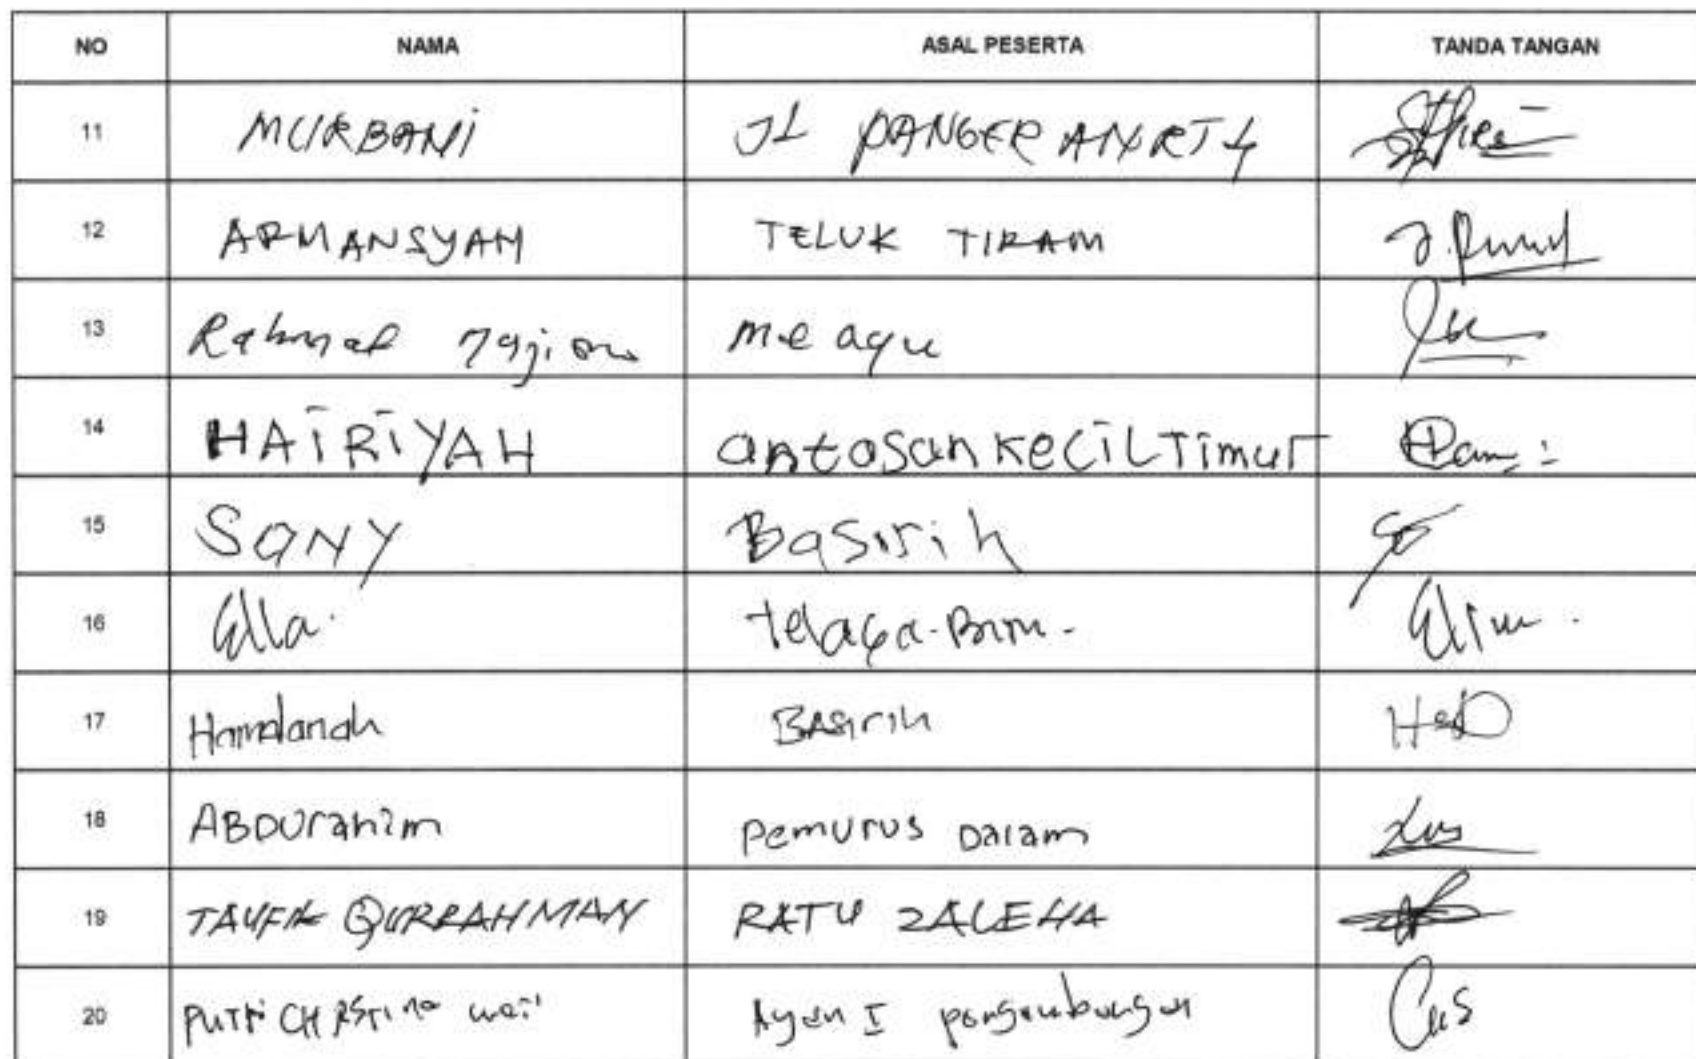 NO NAMA ASAL PESERTA TANDA TANGAN
11 MURBANI JL PANGERAN RT 4
12 ARMANSYAH TELUK TIRAM
13 Rahmad
14 HAIRIYAH antasan KeCiL Timur
15 SONY Basirih
16 Ella. telaga-Biru-
17 Hamdanah BASirih
18 ABDUrahim Pemurus Dalam
19 TAUFIK QURRAHMAN RATU ZALEHA
20 PUTRI